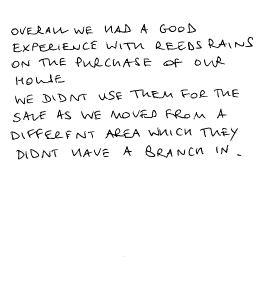 OVERALL WE HAD A GOOD
EXPERIENCE WITH REEDS RAINS
ON THE PURCHASE OF OUR
HOUSE
WE DIDNT USE THEM FOR THE
SALE AS WE MOVED FROM A
DIFFERENT AREA WHICH THEY
DIDNT HAVE A BRANCH IN.